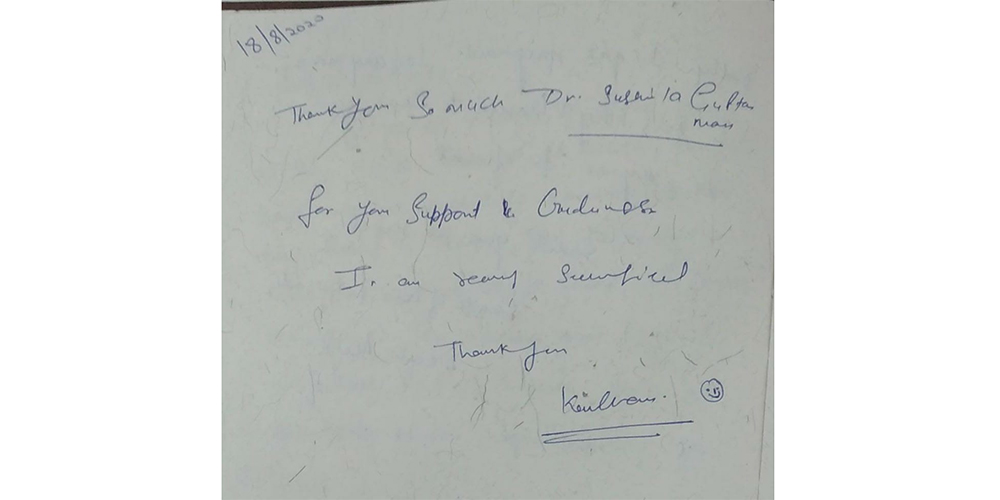 18/8/2020
Thank you So much Dr. Sushila Gupta
mam
for you Support & Guidance
I. am really
Thank you